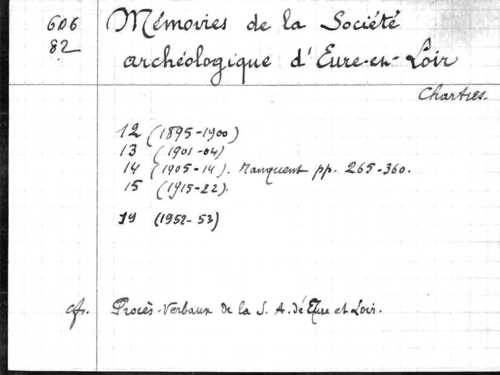 606 Mémoires de la Société
82 archéologique d'Eure-et-Loir
Chartres.
12 (1895-1900)
13 (1901-04)
14 (1905-14). Manquent pp. 265-360.
15 (1915-22).
19 (1952-53)
cf. Procès-Verbaux de la S. A. d'Eure et Loir.